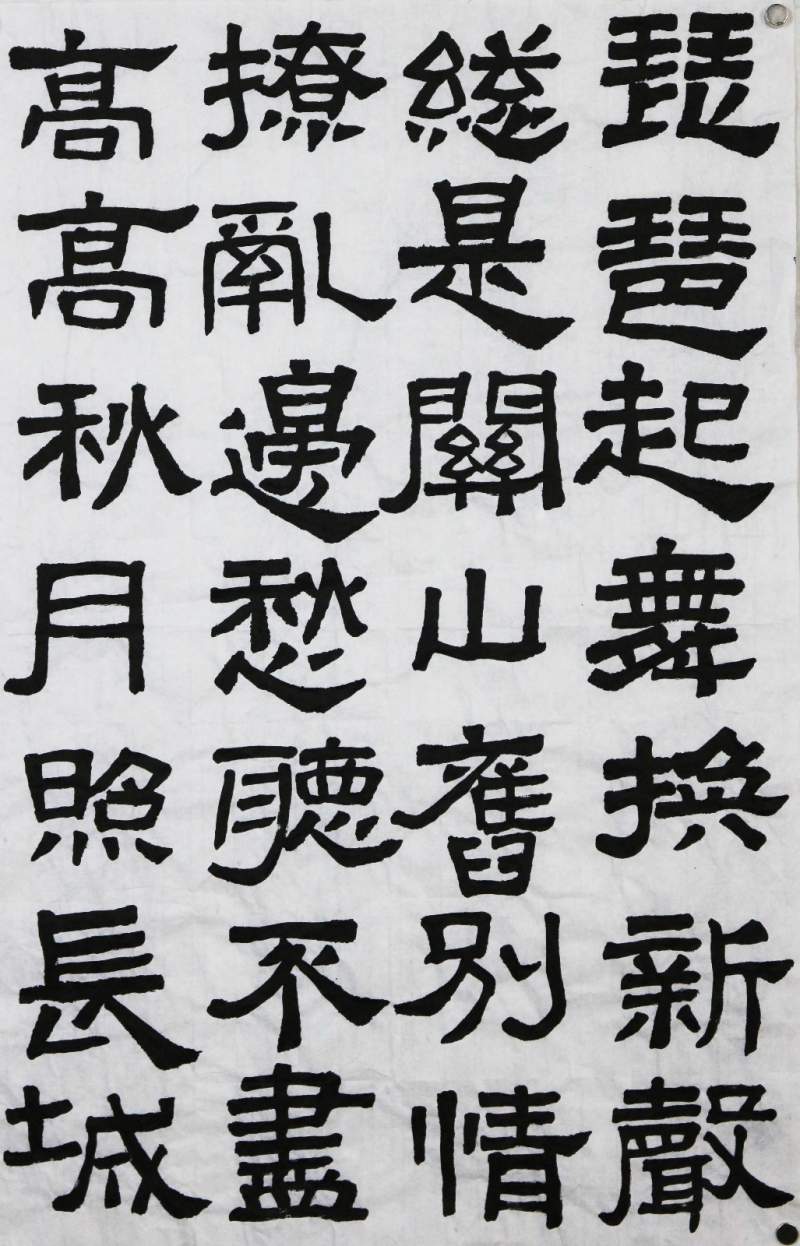 琵琶起舞換新聲
總是關山舊別情
撩亂邊愁聽不盡
高高秋月照長城